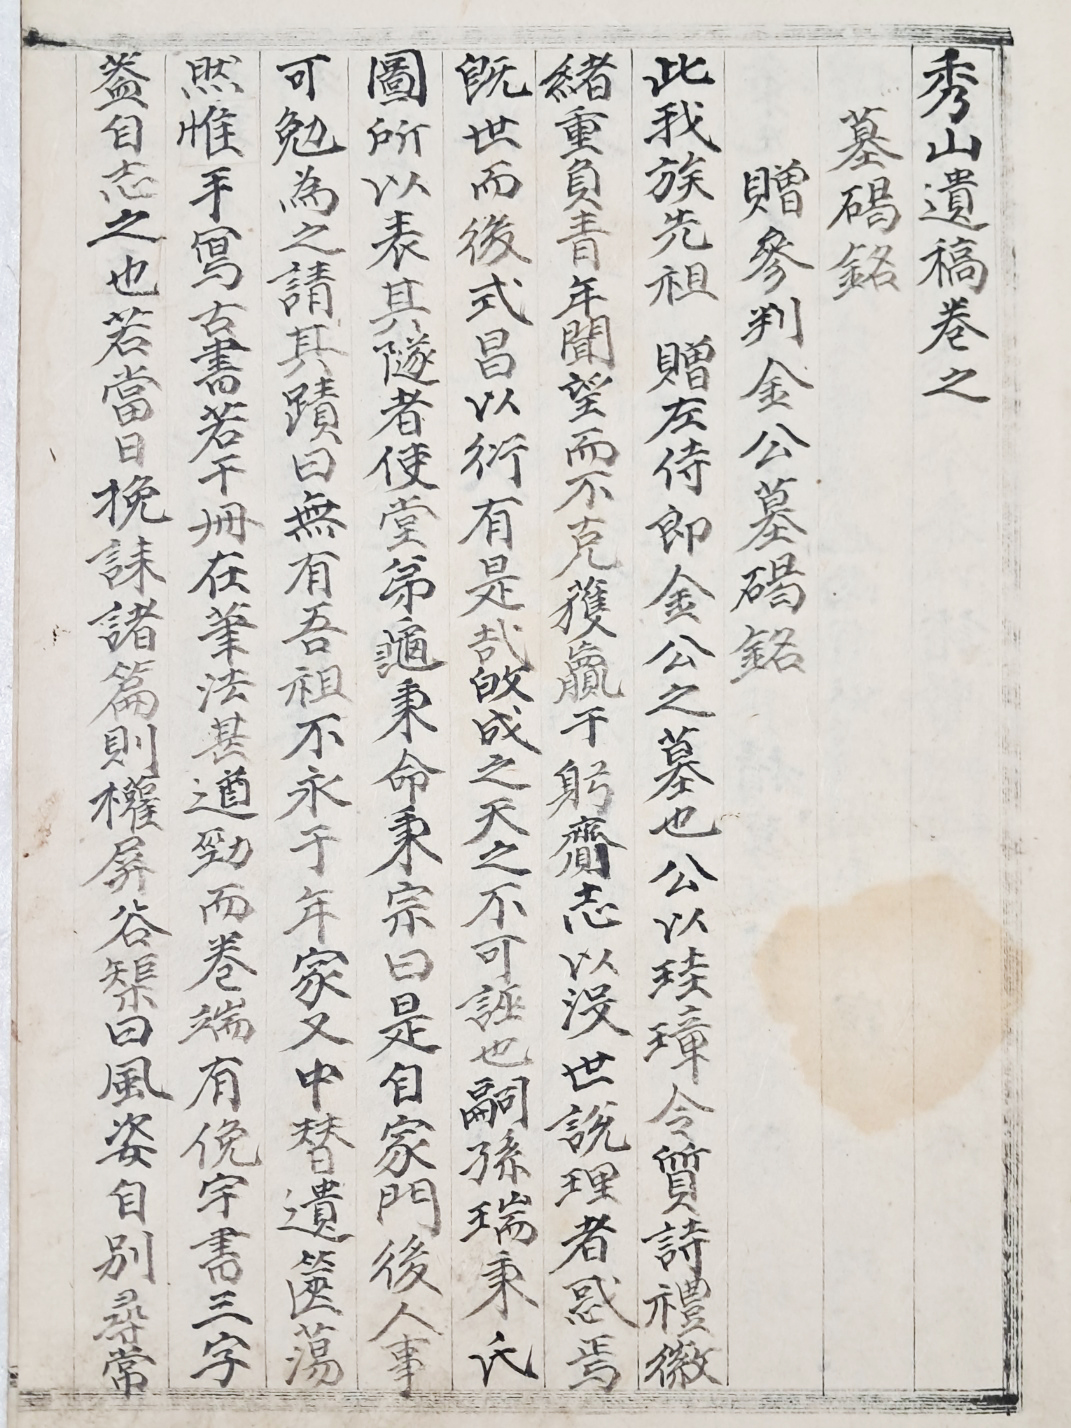 秀山遺稿卷之
墓碣銘
贈參判金公墓碣銘
此我族先祖 贈左侍郎金公之墓也公以珪璋令質詩禮徽
緒重負青年聞望而不克獲贏于躬齎志以沒世說理者惑焉
既世而後式昌以衍有是哉故成之天之不可誣也嗣孫瑞秉氏
圖所以表其隧者使堂弟龜秉命秉宗曰是自家門後人事
可勉為之請其蹟曰無有吾祖不永于年家又中替遺篋蕩
然惟手寫古書若干冊在筆法甚遒勁而卷端有俛宇書三字
蓋自志之也若當日挽誄諸篇則權屏谷榘曰風姿自別尋常